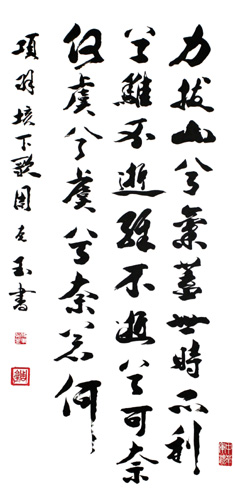 力拔山兮氣蓋世時不利
兮騅不逝騅不逝兮可奈
何虞兮虞兮奈若何
項羽垓下歌周克玉書